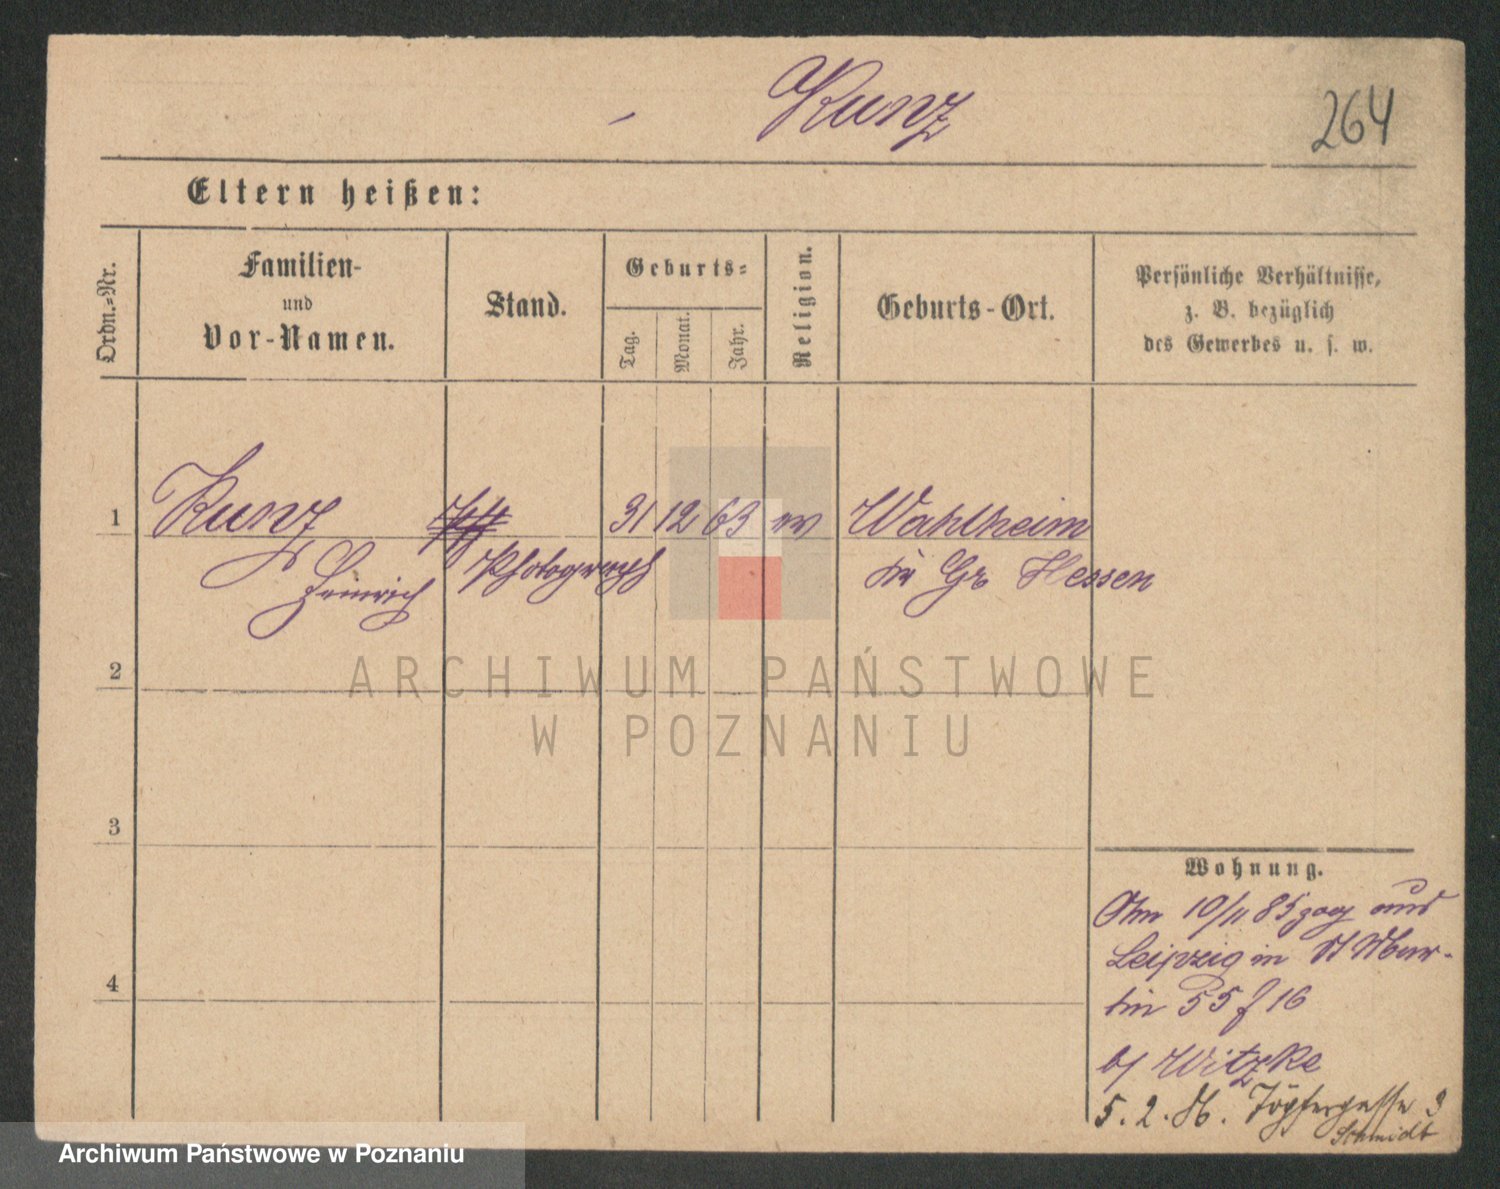 Kunz
264
Eltern heißen:
Ordn.=Nr.
Familien-
und
Vor-Namen.
Stand.
Geburts=
Tag.
Monat.
Jahr.
Religion.
Geburts-Ort.
Persönliche Verhältnisse,
z. B. bezüglich
des Gewerbes u. s. w.
1
Kunz
31 12 63 ev Wahlheim
Heinrich
Photograph
in Gr Hessen
2
ARCHIWUM PAŃSTWOWE
W POZNANIU
3
4
Wohnung.
10/11 85 zog aus
Leipzig in St Mar-
tin 55 16
b/ Witzke
5. 2. 86. Töpfergasse 3
Schmidt
Archiwum Państwowe w Poznaniu